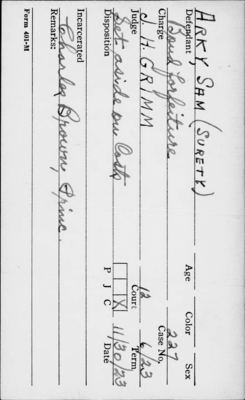 ARKY, SAM (SURETY)
Defendant Age Color Sex
Bond forfeiture 227
Charge Case No.
J. H. GRIMM 12 6/23
Judge Court Term
Set aside on Costs X 11/30/23
Disposition P J C Date
Incarcerated
Charles Brown, Princ.
Remarks:
Form 401-M